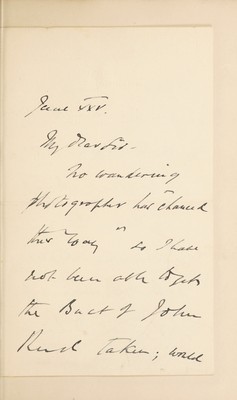 June XXV.
My dear Sir -
No wandering
photographer has "chanced
this way" so I have
not been able to get
the Bust of John
Rend taken; would